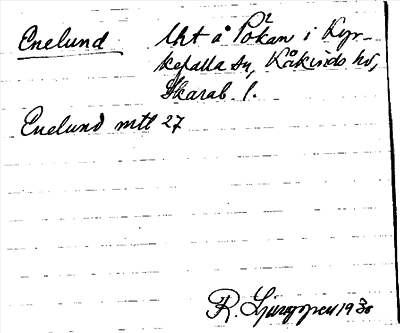 Enelund Uht å Pokan i Kyr-
kefalla sn, Kåkinds hd,
Skarab. l.
Enelund mtl 27
R. Ljunggren 1930